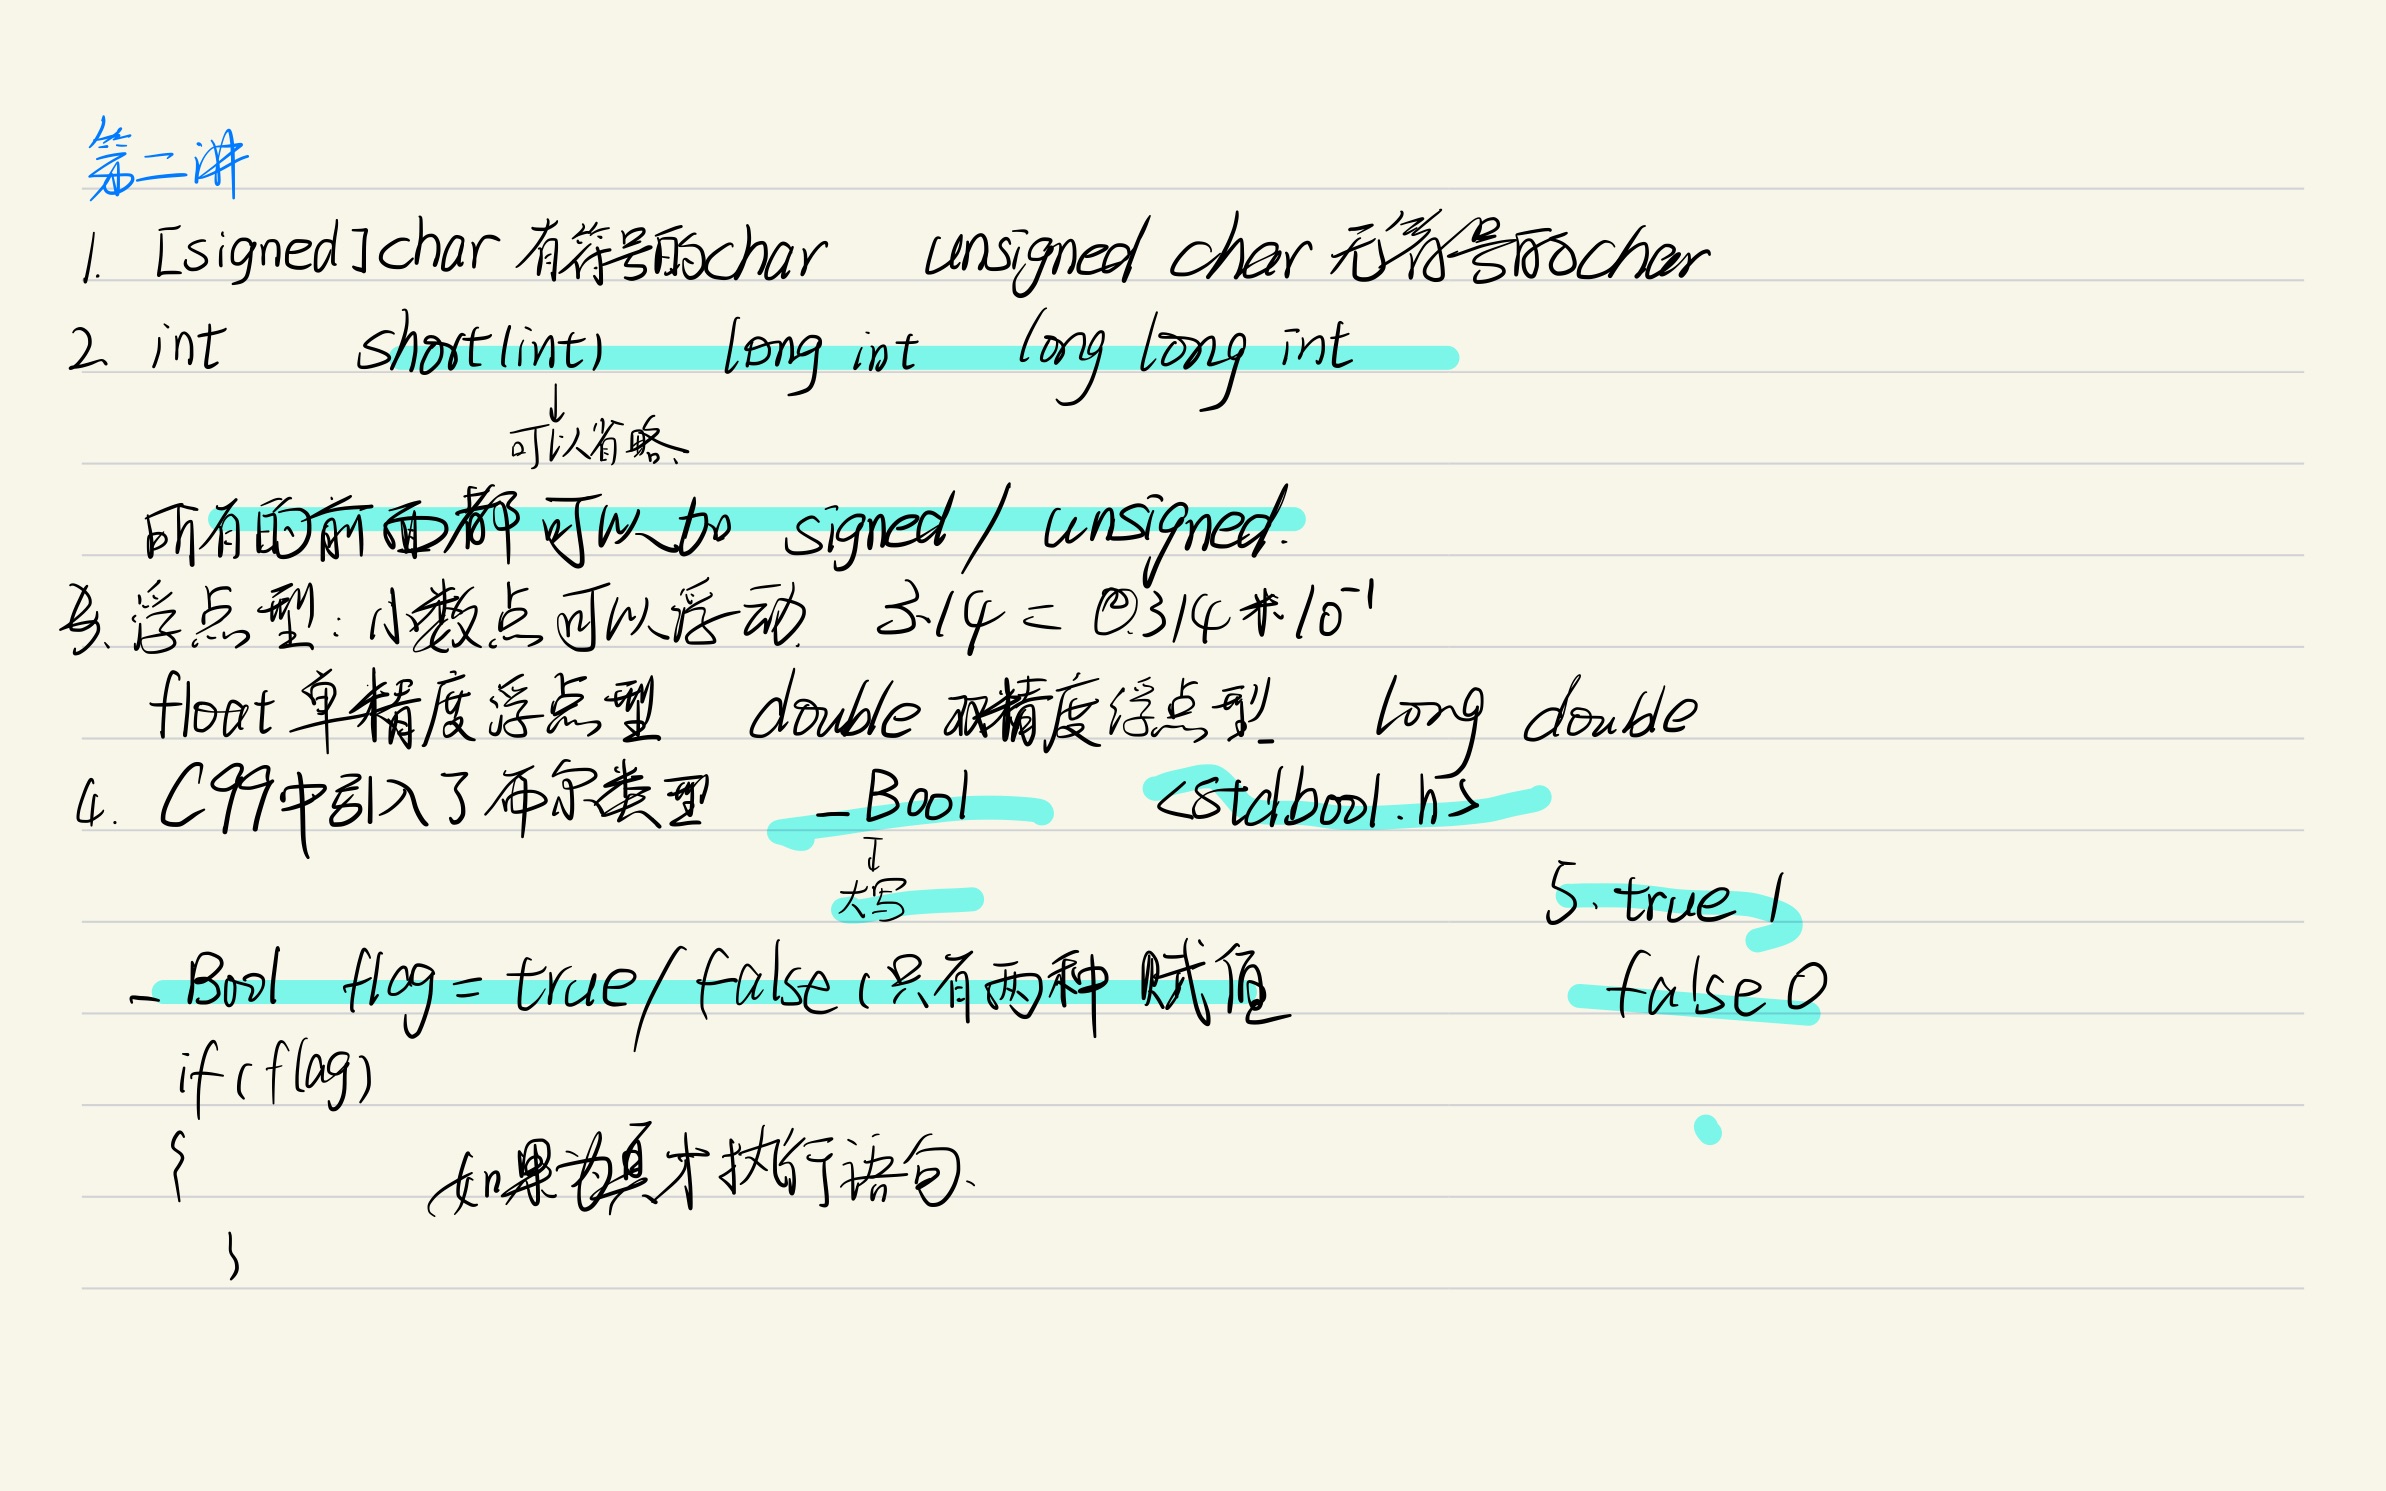 第二讲
1. [signed]char 有符号的char unsigned char 无符号的char
2. int short(int) long int long long int
↓
可以省略、
所有的前面都可以加 signed/unsigned.
3、浮点型：小数点可以浮动. 3.14 = 0.314*10⁻¹
float 单精度浮点型 double 双精度浮点型 long double
4. C99中引入了布尔类型 _Bool <stdbool.h>
↓
大写
5. true 1
_Bool flag = true/false (只有两种赋值
false 0
if(flag)
{ (如果为真才执行语句、
}